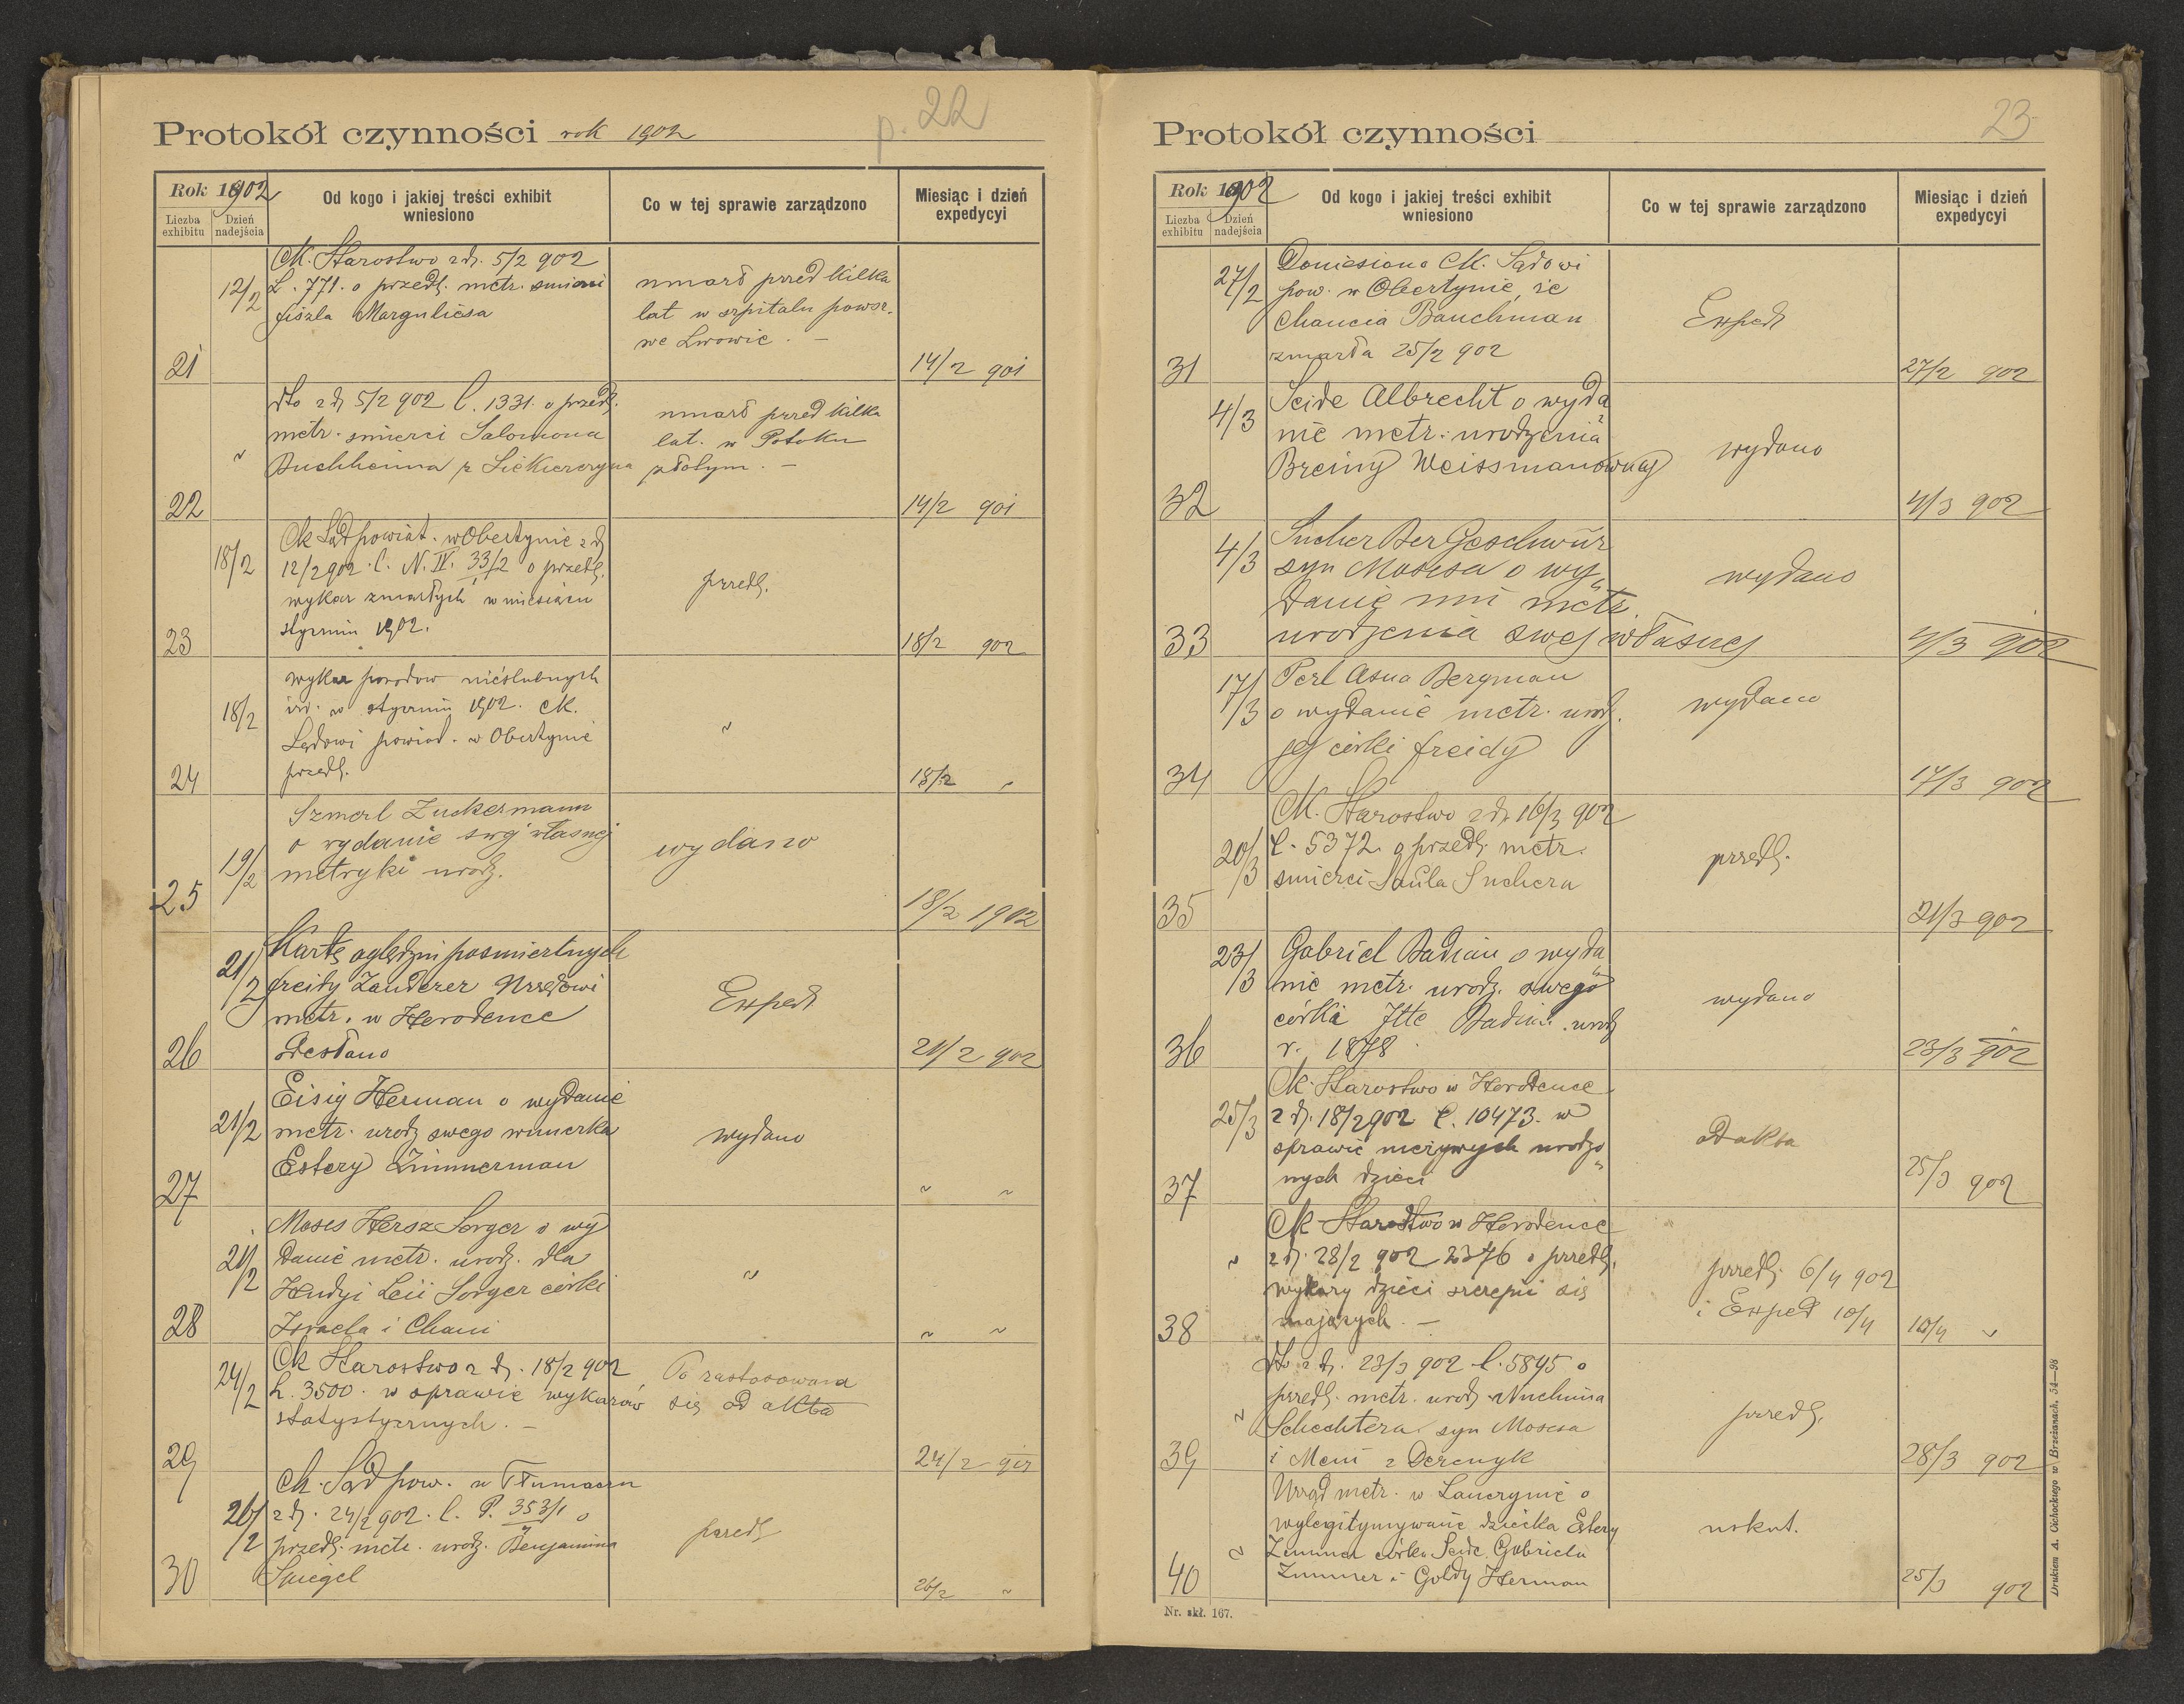 p. 22
Protokół czynności rok 1902
Rok 1902
Liczba exhibitu
Dzień nadejścia
Od kogo i jakiej treści exhibit wniesiono
Co w tej sprawie zarządzono
Miesiąc i dzień expedycyi
21
12/2
CK. Starostwo z dn. 5/2 902
L. 771. o przedł. metr. smierci
fiszla Marguliesa
umarł przed kilka
lat w szpitalu powsz.
we Lwowie. —
14/2 901
22
"
dto z dn 5/2 902 l. 1331. o przedł.
metr. smierci Salomona
Buchheima z Siekierczyna
umarł przed kilka
lat. w Potoku
złotym. —
14/2 901
23
18/2
Ck Sąd powiat. w Obertynie z dn
12/2 902. l. N. IV. 33/2 o przedł.
wykaz zmarłych w miesiącu
styczniu 1902.
przedł.
18/2 902
24
18/2
wykaz porodow nieślubnych
w styczniu 1902. CK.
Sądowi powiat. w Obertynie
przedł.
"
18/2 "
25
19/2
Szmerl Zuckermann
o wydanie swej własnej
metryki urodz.
wydano
18/2 1902
26
21/2
Kartę oględzin posmiertnych
freidy Zanderer Urzędowi
metr. w Horodence
Odesłano
Exped
21/2 902
27
21/2
Eisig Herman o wydanie
metr. urodz swego wnuerka
Estery Zimmerman
wydano
" "
28
21/2
Moses Hersz Sorger o wy
danie metr. urodz. dla
Hudyi Leii Sorger córki
Izraela i Chani
"
" "
29
24/2
Ck Starostwo z dn. 18/2 902
L. 3500. w sprawie wykazów
statystycznych. —
Po zastosowaniu
się ad akta
24/2 902
30
26/2
Ck. Sąd pow. w Tłumaczu
z dn. 24/2 902. l. P. 353/1 o
przedł. metr. urodz. Benjamina
Spiegel
przedł
26/2 "
23
Protokół czynności
Rok 1902
Liczba exhibitu
Dzień nadejścia
Od kogo i jakiej treści exhibit wniesiono
Co w tej sprawie zarządzono
Miesiąc i dzień expedycyi
31
27/2
Doniesiono CK. Sądowi
pow. w Obertynie, że
Chancia Bauchman
zmarła 25/2 902
Exped
27/2 902
32
4/3
Seide Albrecht o wyda
nie metr. urodzenia
Breiny Weissmanównej
wydano
4/3 902
33
4/3
Sucher Ber Geschwür
syn Mosesa o wy
danie mu metr.
urodzenia swej własnej
wydano
4/3 902
34
17/3
Perl Asna Bergman
o wydanie metr. urodz.
jej córki freidy
wydano
17/3 902
35
20/3
CK. Starostwo z dn 16/3 902
l. 5372. o przedł. metr.
smierci Saula Suchera
przedł.
21/3 902
36
23/3
Gabriel Badian o wyda
nie metr. urodz. swego
córki Itte Badian. urodz
r. 1878.
wydano
23/3 902
37
25/3
Ck. Starostwo w Horodence
z dn. 18/2 902 l. 10473. w
sprawie nieżywych urodzo
nych dzieci
ad akta
25/3 902
38
"
Ck Starostwo w Horodence
z dn. 28/2 902 2376 o przedł.
wykazy dzieci szczepić się
mających. —
przedł. 6/4 902
i Exped 10/4
10/4 "
39
"
dto z dn. 23/3 902 l. 5895 o
przedł. metr. urodz. Nuchima
Schechtera syn Mosesa
i Meni z Derenyk
przedł.
28/3 902
40
"
Urząd metr. w Lanczynie o
wylegitymywanie dziecka Estery
Zimmer córka Seide Gabriela
Zimmer i Goldy Herman
uskut.
25/3 902
Nr. skł. 167.
Drukiem A. Cichockiego w Brzeżanach. 54—98